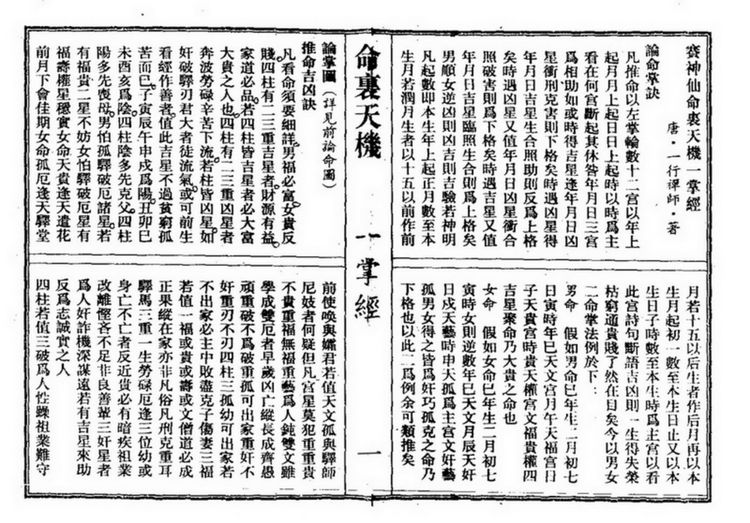 賽神仙命裏天機一掌經
唐·一行禪師·著
論命掌訣
凡推命以左掌輪數十二宮以年上
起月月上起日日上起時以時爲主
看在何宮斷起其休咎年月日三宮
爲相助如或時得吉星逢年月日凶
星衝刑克害則下格矣時遇凶星得
年月日吉星生合照助則反爲上格
矣時遇凶星又值年月日凶星衝合
照破害則爲下格矣時遇吉星又值
年月日吉星臨照生合則爲上格矣
男順女逆凶則凶吉則吉驗若神明
凡起數即本生年上起正月數至本
生月若潤月生者以十五以前作前
月若十五以后生者作后月再以本
生月起初一數至本生日止又以本
生日子時數至本生時爲主宮以看
此宮詩句斷語吉凶則一生得失榮
枯窮通貴賤了然在目矣今以男女
二命掌法例於下：
男命 假如男命巳年生二月初七
日寅時年巳天文宮月午天福宮日
子天貴宮時貴天權宮文福貴權四
吉星聚命乃大貴之命也
女命 假如女命巳年生二月初七
寅時女則逆數年巳天文月辰天奸
日戌天藝時申天孤爲主宮文奸藝
孤男女得之皆爲奸巧孤克之命乃
下格也以此二爲例余可類推矣
命裏天機 一掌經 一
論掌圖（詳見前論命圖）
推命吉凶訣
凡看命須要細詳。男福必富女貴反
賤。四柱有二三重吉星者。財源有益。
家道必品。若四柱皆吉星者必大富
大貴之人也。四柱有一二三重凶星者
奔波勞碌辛苦下流。若柱皆凶星如
奸破驛刃君大者徒流氣或可前生
看經作善者值此吉星不過貧窮孤
苦而已。子寅辰午申戌爲陽丑卯巳
未酉亥爲陰四柱陰多先克父四柱
陽多先喪母男怕孤驛破厄諸星若
有福貴二星不妨女怕驛破厄星有
福壽權星穩實女命天貴逢天遣花
前月下會佳期女命孤厄逢天驛堂
前使喚與孀君若值天文孤與驛師
尼妓者何疑但凡宮星莫犯重重貴
不貴重福無福重藝爲人鈍雙文雖
學成雙厄者早歲凶亡縱長成齊愚
頑重破不爲破重孤可出家重奸不
奸重刃不刃四柱三孤幼可出家若
不出家必主中敗盡克子傷妻三福
若值一福或貴或壽或文僧道必成
正果縱在家亦非凡俗凡刑克重耳
驛馬三重一生勞碌厄逢三位幼或
身亡不亡者反近貴必有暗疾祖業
改離慳吝不足非良善輩三奸星者
爲人奸詐機深謀遠若有吉星來助
反爲志誠實之人
四柱若值三破爲人性躁祖業難守